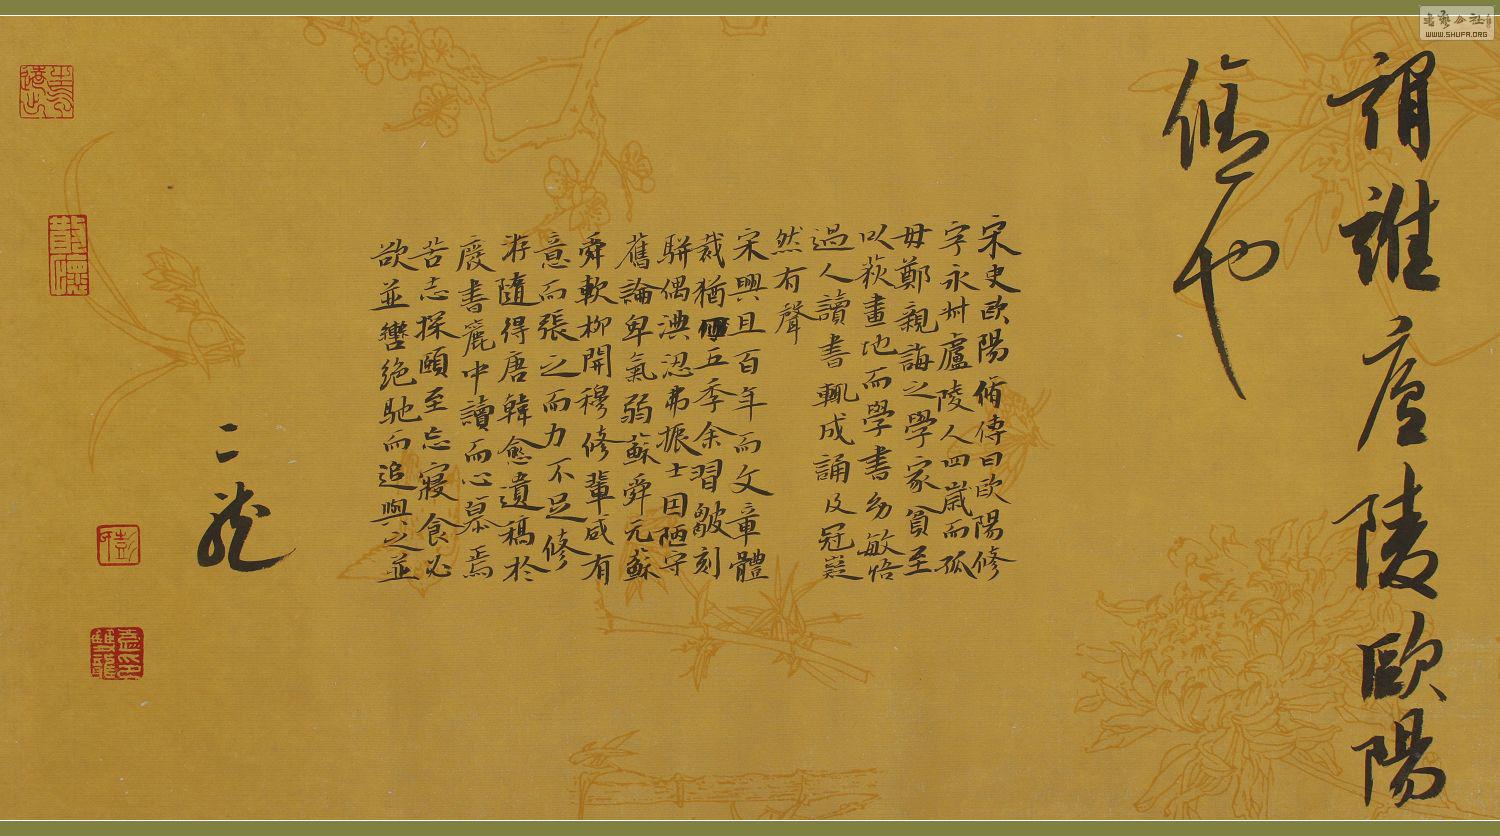 謂誰廬陵歐陽
脩也
宋史歐陽脩傳曰歐陽修
字永叔廬陵人四歲而孤
毋鄭親誨之學家貧至
以荻畫地而學書幼敏悟
過人讀書輒成誦及冠嶷
然有聲
宋興且百年而文章體
裁猶仍五季余習皺刻
駢偶淟涊弗振士因陋守
舊論卑氣弱蘇舜元蘇
舜欽柳開穆修輩咸有
意而張之而力不足修
游隨得唐韓愈遺稿於
廢書簏中讀而心慕焉
苦志探頤至忘寢食必
欲並轡絶馳而追與之並
二龍
書藝公社
WWW.SHUFA.ORG